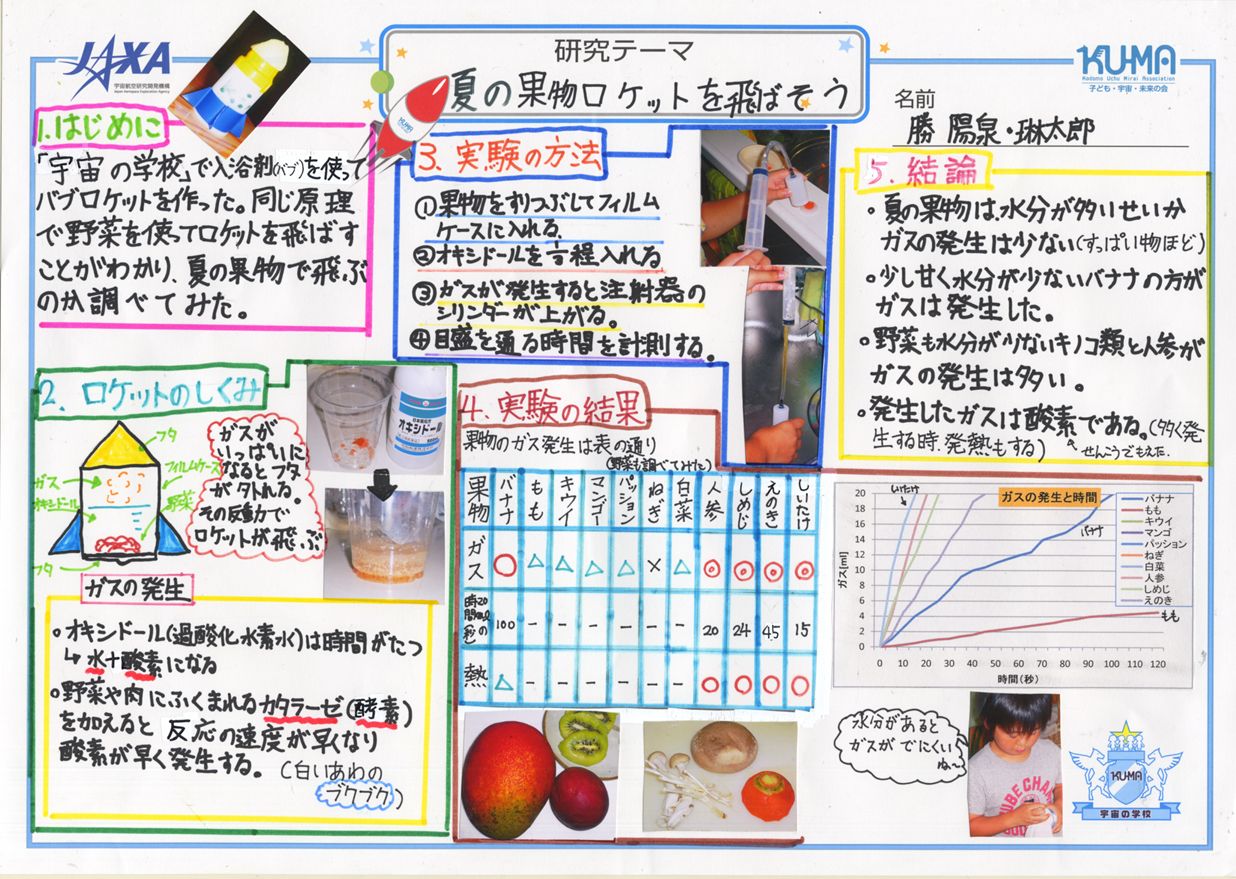 JAXA
宇宙航空研究開発機構
Japan Aerospace Exploration Agency
研究テーマ
夏の果物ロケットを飛ばそう
KUMA
KUMA
Kodomo Uchu Mirai Association
子ども・宇宙・未来の会
名前
勝 陽泉・琳太郎
1.はじめに
「宇宙の学校」で入浴剤(バブ)を使って
バブロケットを作った。同じ原理
で野菜を使ってロケットを飛ばす
ことがわかり、夏の果物で飛ぶ
のか調べてみた。
2、ロケットのしくみ
フタ
ガス
フィルムケース
オキシドール
野菜
フタ
ガスが
いっぱいに
なるとフタ
がタトれる。
その反動で
ロケットが飛ぶ
オキシドール
ガスの発生
・オキシドール(過酸化水素水)は時間がたつ
↳水+酸素になる
・野菜や肉にふくまれるカタラーゼ(酵素)
を加えると反応の速度が早くなり
酸素が早く発生する。(白いあわの
ブクブク)
3、実験の方法
①果物をすりつぶしてフィルム
ケースに入れる、
②オキシドールを方程入れる
③ガスが発生すると注射器の
シリンダーが上がる。
④目盛を通る時間を計則する。
4、実験の結果
果物のガス発生は表の通り
(野菜も調べてみた)
果物 バナナ もも キウイ マンゴー パッション ねぎ 白菜 人参 しめじ えのき しいたけ
ガス ○ △ △ △ △ × △ ◎ ◎ ◎ ◎
100 - - - - - - 20 24 45 15
熱 △ - - - - - - ○ ○ ○ ○
5、結論
・夏の果物は、水分が多いせいか
ガスの発生は少ない(すっぱい物ほど)
・少し甘く水分が少ないバナナの方が
ガスは発生した。
・野菜も水分が少ないキノコ類と人参が
ガスの発生は多い。
・発生したガスは酸素である。(多く発
生する時、発熱もする)
せんこうでもえた.
ガスの発生と時間
しいたけ
バナナ
もも
ガス[ml]
20
18
16
14
12
10
8
6
4
2
0
0 10 20 30 40 50 60 70 80 90 100 110 120
時間(秒)
バナナ
もも
キウイ
マンゴ
パッション
ねぎ
白菜
人参
しめじ
えのき
水分があると
ガスがでにくい
ね〜
KUMA
宇宙の学校